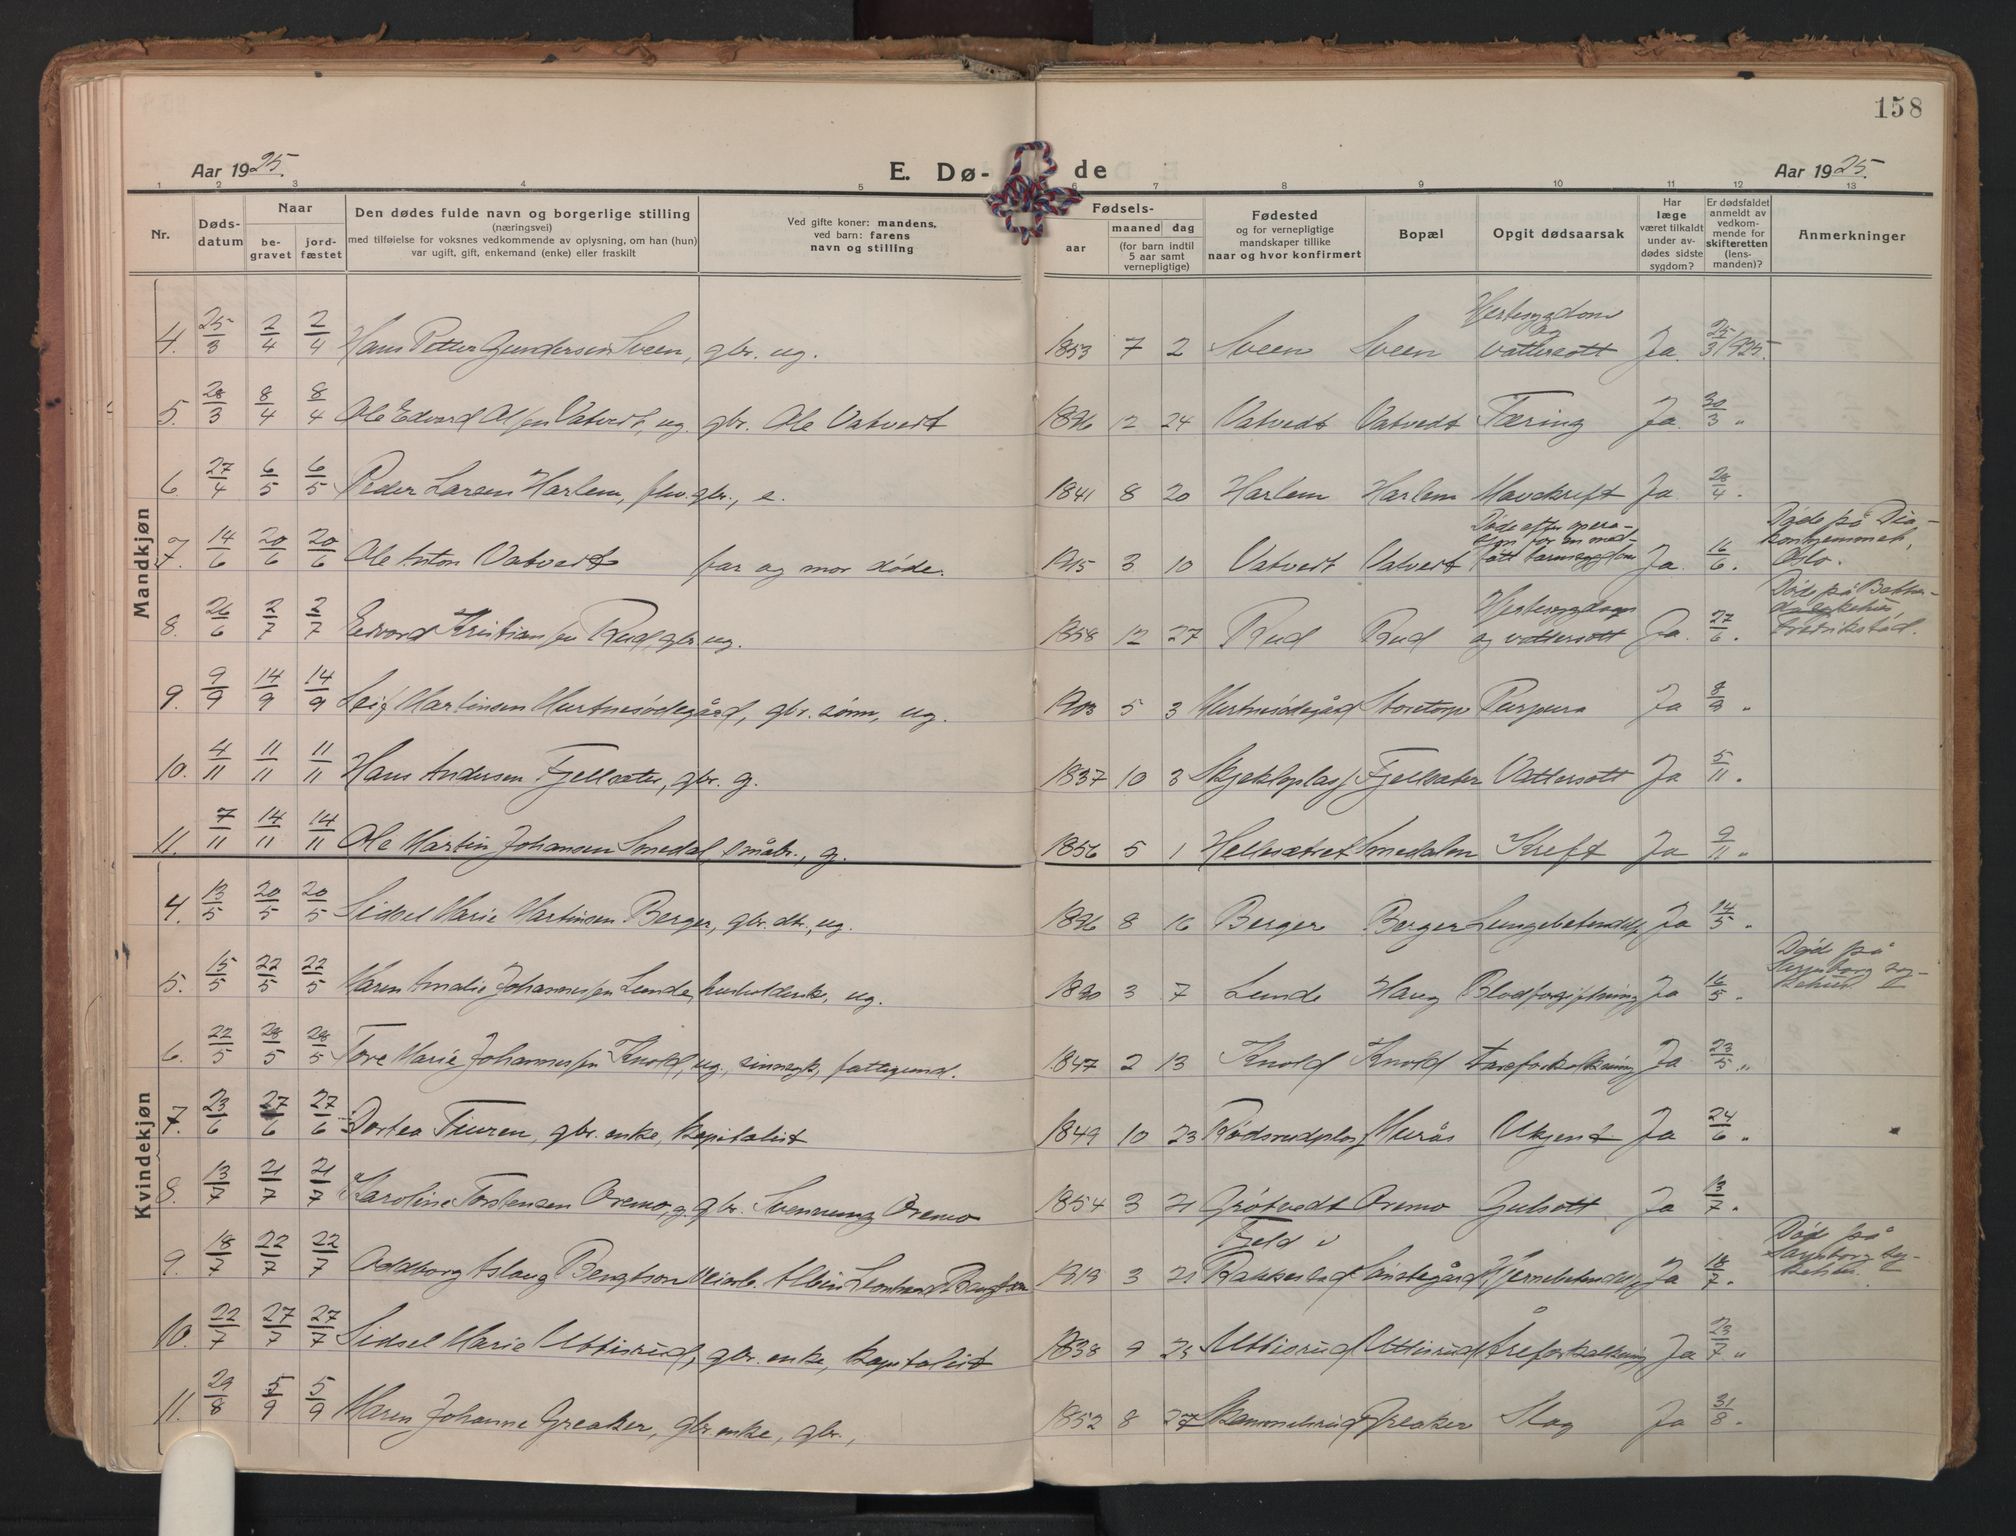 158
Aar 1925. E. Dø- de Aar 1925.
1 2 3 4 5 6 7 8 9 10 11 12 13
Nr. Døds-datum Naar be-gravet jord-fæstet Den dødes fulde navn og borgerlige stilling (næringsvei) med tilføielse for voksnes vedkommende av oplysning, om han (hun) var ugift, gift, enkemand (enke) eller fraskilt Ved gifte koner: mandens, ved barn: farens navn og stilling Fødsels- aar maaned dag (for barn indtil 5 aar samt vernepligtige) Fødested og for vernepligtige mandskaper tillike naar og hvor konfirmert Bopæl Opgit dødsaarsak Har læge været tilkaldt under av-dødes sidste sygdom? Er dødsfaldet anmeldt av vedkom-mende for skifteretten (lens-manden)? Anmerkninger
Mandkjøn
4. 25/3 2/4 2/4 Hans Petter Gundersen Sveen, gbr. ug. 1853 7 2 Sveen Sveen Hertesygdom og vattersott Ja. 25/3 1925.
5. 28/3 8/4 8/4 Ole Edvard Olsen Vatvedt, ug. gbr. Ole Vatvedt 1896 12 24 Vatvedt Vatvedt Tæring Ja 30/3 "
6. 27/4 6/5 6/5 Peder Larsen Harlem, fhv. gbr., e. 1841 8 20 Harlem Harlem Mavekreft Ja 28/4.
7. 14/6 20/6 20/6 Ole Anton Vatvedt far og mor døde. 1915 3 10 Vatvedt Vatvedt Døde efter opera-sjon for en med-født tarmsygdom Ja 16/6. Døde på Dia-konhjemmet, Oslo.
8. 26/6 2/7 2/7 Edvard Kristiansen Rud, gbr. ug. 1858 12 27 Rud Rud Hjertesygdom og vattersott Ja. 27/6. Døde på Betha-nia sykehus Fredrikstad.
9. 9/9 14/9 14/9 Leif Martinsen Murtnesødegård, gbr. sønn, ug. 1903 5 3 Murtnesødegård Storetorp Purpura Ja 8/9 "
10. 4/11 11/11 11/11 Hans Andersen Fjellsæter, gbr. g. 1837 10 3 Skjekleplass Fjellsæter Vattersott Ja 5/11.
11. 7/11 14/11 14/11 Ole Martin Johansen Smedal, småbr., g. 1856 5 1 Hellesætret Smedalen Kreft Ja 9/11 "
Kvindekjøn
4. 13/5 20/5 20/5 Sidsel Marie Martinsen Berger, gbr. dtr., ug. 1896 8 16 Berger Berger Lungebetendelse Ja 14/5 "
5. 15/5 22/5 22/5 Maren Amalie Johannessen Lunde, husholderske, ug. 1890 3 7 Lunde Haug Blodforgiftning Ja 16/5 " Død på Sarpsborg sy-kehus
6. 22/5 28/5 28/5 Tore Marie Johannessen Knold, ug., sinnsyk, fattigund. 1847 2 13 Knold Knold Åreforkalkning Ja 23/5 "
7. 23/6 27/6 27/6 Dortea Tiuren, gbr. enke, kapitalist 1849 10 23 Rødsrudplass Murås Ukjent Ja 24/6 "
8. 13/7 21/7 21/7 Karoline Torstensen Oremo, g. gbr. Svennung Oremo 1854 3 21 Grøtvedt Oremo Gulsott Ja 13/7.
9. 18/7 22/7 22/7 Oddborg Aslaug Bengtson Meierib. Albin Leonhardt Bengtson 1919 3 21 Fjeld i Rakkestad Hjernebetendelse Ja 18/7. Død på Sarpsborg sy-kehus.
10. 22/7 27/7 27/7 Sidsel Marie Uttisrud, gbr. enke, kapitalist 1838 9 25 Uttisrud Uttisrud Åreforkalkning Ja 23/7 "
11. 29/8 5/9 5/9 Maren Johanne Greaker, gbr. enke, gbr., 1852 8 27 Skammelsrud Greaker Slag Ja 31/8.